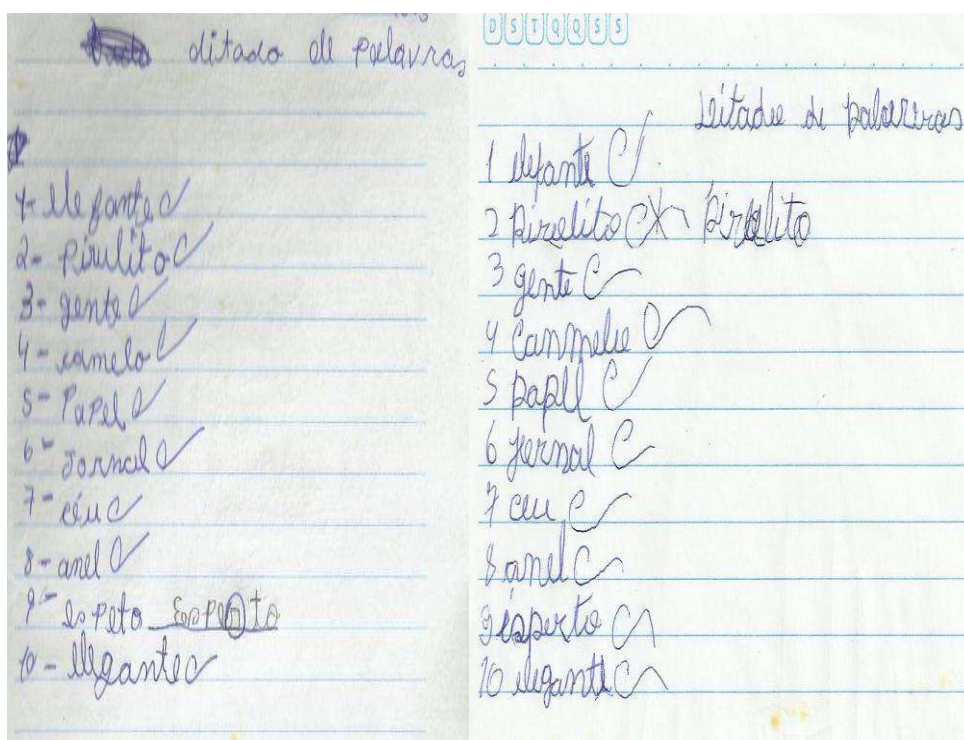 ditado de Palavras
1- elefante C
2- Pirulito C
3- gente C
4- camelo C
5- Papel C
6- Jornal C
7- céu C
8- anel C
9- espeto
10- elegante C
D S T Q Q S S
ditado de palavras
1 elefante C
2 Pirolito C
3 gente C
4 Canmelo C
5 papel C
6 jornal C
7 ceu C
8 anel C
9 esperto C
10 elegante C